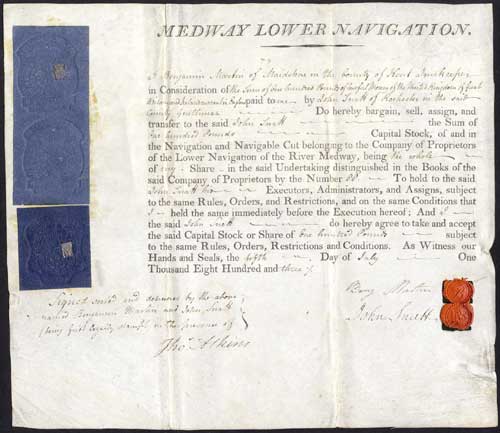 MEDWAY LOWER NAVIGATION.
I Benjamin Martin of Maidstone in the County of Kent Innkeeper
in Consideration of the Sum of One hundred Pounds of lawful Money of the United Kingdom of Great
Britain and Ireland paid to me by John Snett of Rochester in the said
County Gentleman Do hereby bargain, sell, assign, and
transfer to the said John Snett the Sum of
One hundred Pounds Capital Stock, of and in
the Navigation and Navigable Cut belonging to the Company of Proprietors
of the Lower Navigation of the River Medway, being the whole
of my Share in the said Undertaking distinguished in the Books of the
said Company of Proprietors by the Number To hold to the said
John Snett his Executors, Administrators, and Assigns, subject
to the same Rules, Orders, and Restrictions, and on the same Conditions that
I held the same immediately before the Execution hereof; And I
the said John Snett do hereby agree to take and accept
the said Capital Stock or Share of One hundred Pounds subject
to the same Rules, Orders, Restrictions and Conditions. As Witness our
Hands and Seals, the fifth Day of July One
Thousand Eight Hundred and three
Signed sealed and delivered by the above
named Benjamin Martin and John Snett
(being first legally stampt) in the presence of
Thos. Atkins
Benj Martin
John Snett